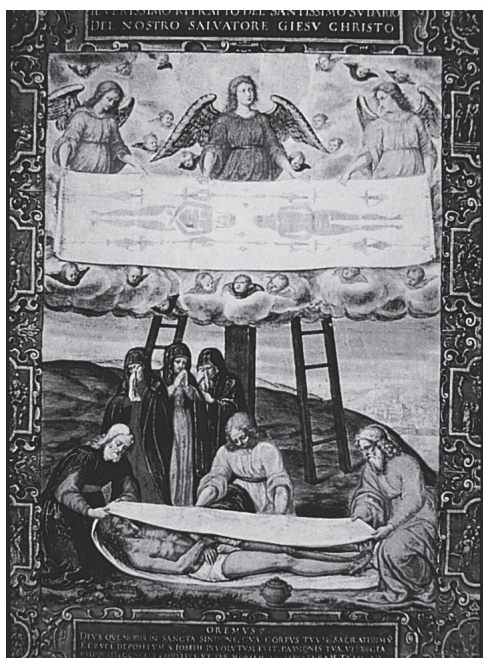 IL VERISSIMO RITRATTO DEL SANTISSIMO SVDARIO
DEL NOSTRO SALVATORE GIESV CHRISTO
OREMVS
DEVS QVI NOBIS IN SANCTA SINDONE, QVA CORPVS TVVM SACRATISSIMV
E CRVCE DEPOSITVM A IOSEPH INVOLVTVM FVIT, PASSIONIS TVÆ VESTIGIA
VT PER MORTEM